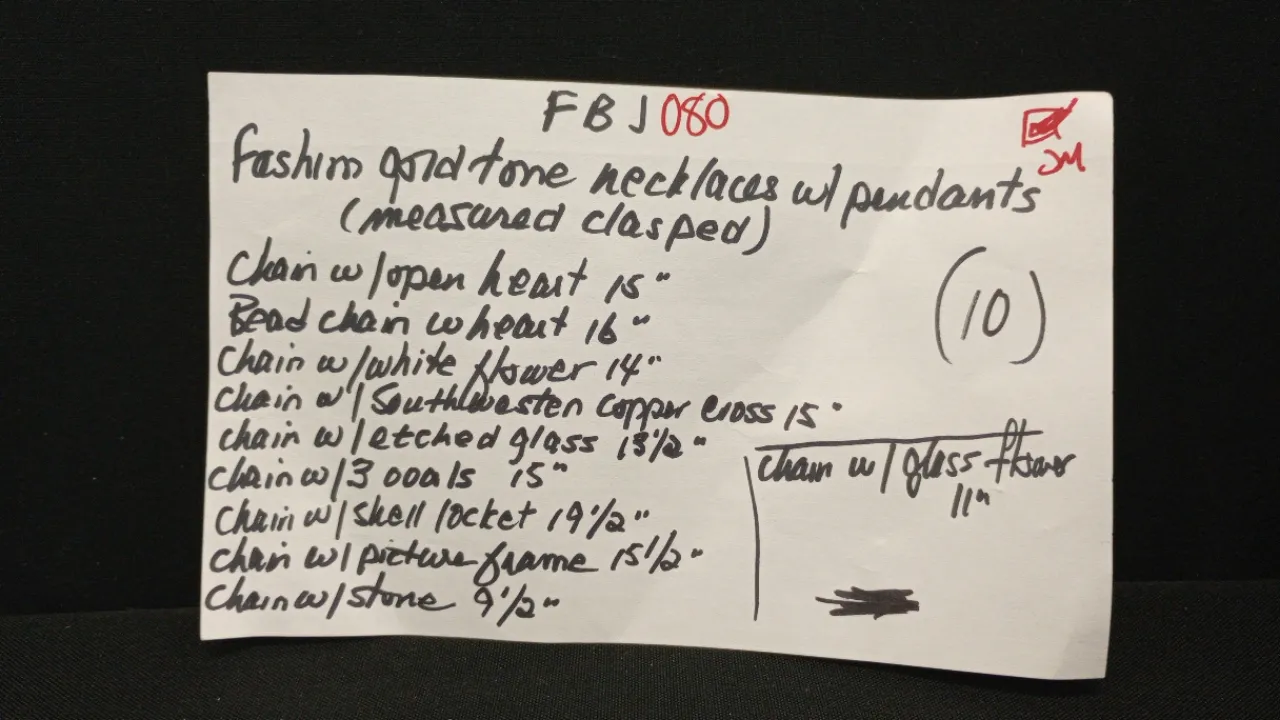 FBJ080
JM
Fashion goldtone necklaces w/ pendants
(measured clasped)
Chain w/open heart 15"
Bead chain w heart 16"
(10)
Chain w/white flower 14"
Chain w/Southwesten copper cross 15"
chain w/etched glass 13 1/2"
Chain w/3 ovals 15"
Chain w/shell locket 19 1/2"
Chain w/picture frame 15 1/2"
Chain w/stone 9 1/2"
chain w/ glass flower
11"